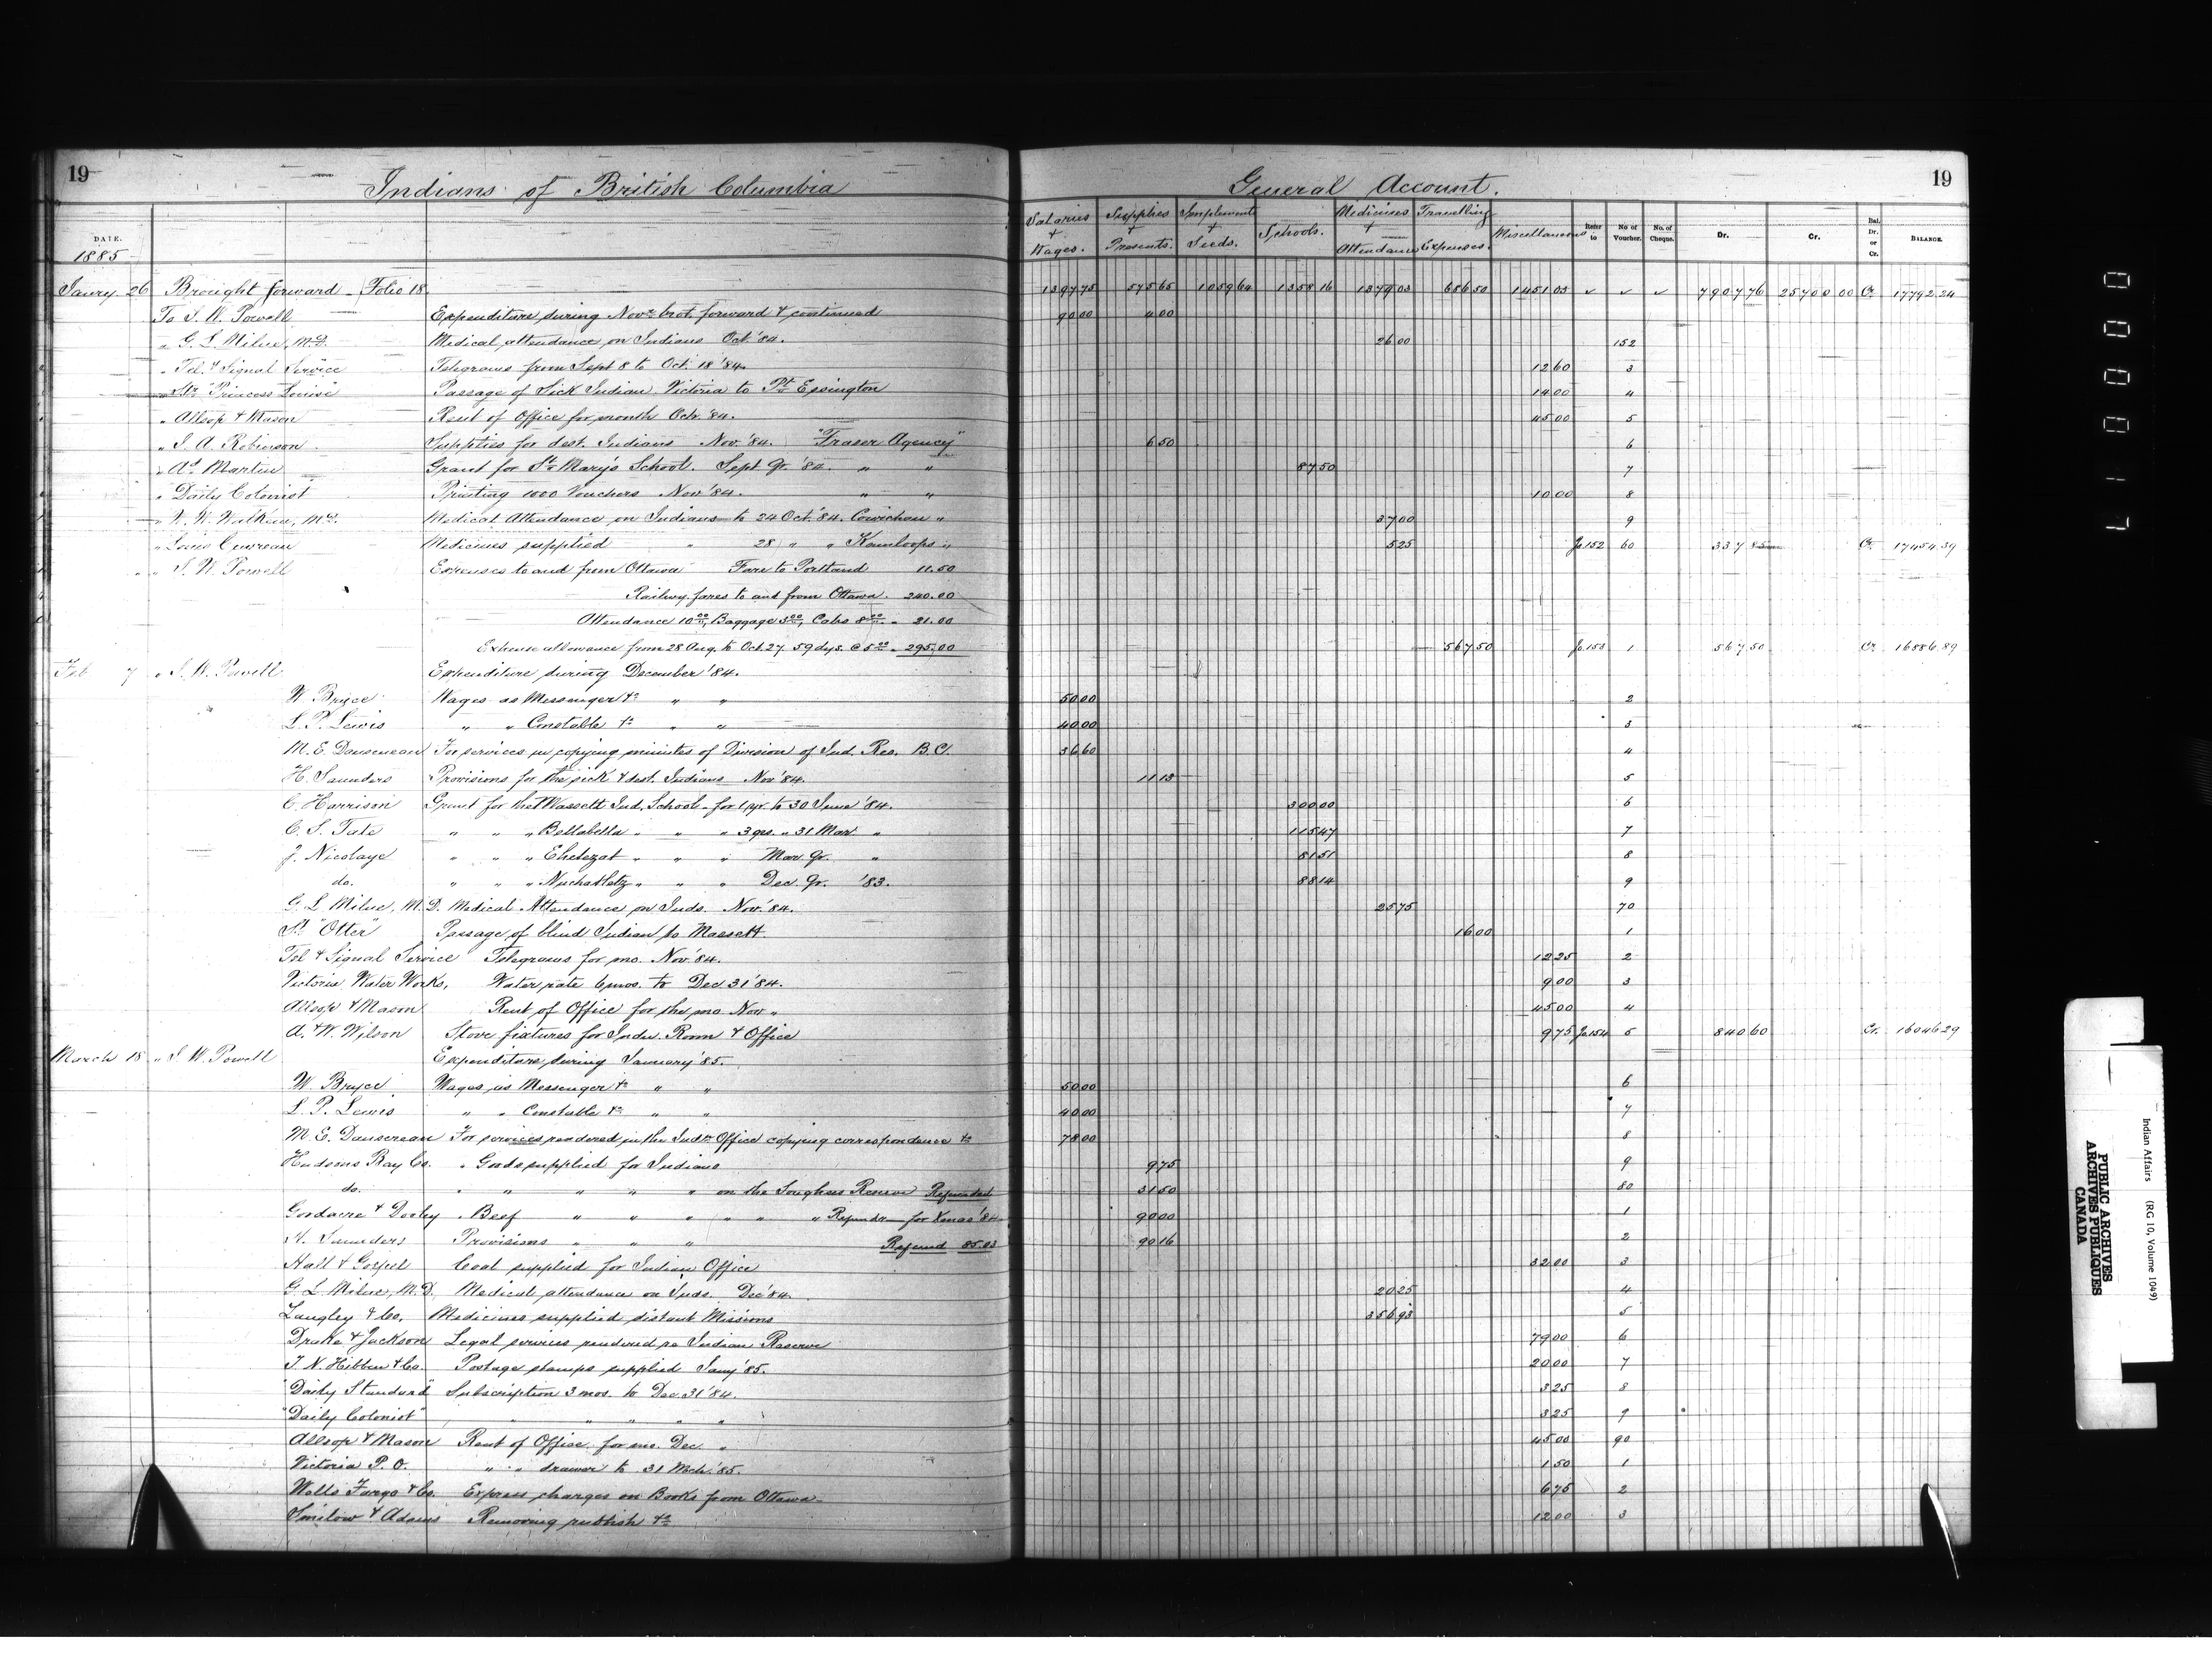 19
Indians of British Columbia
General Account.
19
DATE.
1885
Salaries + Wages.
Supplies + Presents.
Implements + Seeds.
Schools.
Medicines + Attendance
Travelling Expenses.
Miscellaneous
Refer to
No of Voucher.
No. of Cheque.
Dr.
Cr.
Bal. Dr. or Cr.
BALANCE.
Janry 26 Brought forward - Folio 18. 1397.75 575.65 1059.60 1358.16 1379.03 686.50 1451.03 ✓ ✓ ✓ 7907.76 25700.00 Cr. 17792.24
To I. W. Powell Expenditure during Novr. brot. forward & continued 90.00 4.00
" G. L. Milne, M.D. Medical attendance on Indians Oct '84. 26.00 152
" Tel. & Signal Service Telegrams from Sept 8 to Oct. 18 '84. 12.60 3
" Str. "Princess Louise" Passage of Sick Indian Victoria to Pt. Essington 14.00 4
" Allsop & Mason Rent of Office for month Octr. '84. 45.00 5
" J. A. Robinson Supplies for dest. Indians Nov. '84. "Fraser Agency" 6.50 6
" Martin Grant for St. Mary's School. Sept Qr. '84. " " 87.50 7
" Daily Colonist Printing 1000 Vouchers Nov '84. " " 10.00 8
" W. W. Walkem, M.D. Medical Attendance on Indians to 24 Oct. '84. Cowichan " 37.00 9
" Louis Medicines supplied " 28 " " Kamloops " 5.25 Jo.152 60 337.85 Cr. 17454.39
" I. W. Powell Expenses to and from Ottawa Fare to Portland 11.50
Railway fares to and from Ottawa. 240.00
Attendance 10.00, Baggage 3.00, Cabs 8.00 - 21.00
Expense allowance from 28 Aug. to Oct. 27 59 dys. @ 5.00 - 295.00 567.50 Jo.153 1 567.50 Cr. 16886.89
Feb 7 " I. W. Powell Expenditure during December '84.
W. Bryce Wages as Messenger &c " " 50.00 2
L. P. Lewis " " Constable &c " " 40.00 3
M. E. Dansereau For services in copying minutes of Division of Ind. Res. B.C. 36.60 4
H. Saunders Provisions for the sick & dest. Indians Nov '84. 11.13 5
C. Harrison Grant for the Massett Ind. School - for 1 yr. to 30 June '84. 300.00 6
C. S. Tate " " " Bellabella " " " 3 qrs. " 31 Mar " 115.47 7
J. Nicolaye " " " " " " Mar. Qr. " 81.51 8
do. " " " Nuchatletz " " " Dec. Qr. '83. 88.14 9
G. L. Milne, M.D. Medical Attendance on Inds. Nov. '84. 25.75 70
St. "Otter" Passage of blind Indian to Massett. 16.00 1
Tel & Signal Service Telegrams for mo. Nov. '84. 12.25 2
Victoria Water Works, Water rate 6 mos. to Dec 31 '84. 9.00 3
Allsop & Mason Rent of Office for the mo. Nov " 45.00 4
A. & W. Wilson Stove fixtures for Indn. Room & Office 9.75 Jo.154 5 840.60 Cr. 16046.29
March 18 " I. W. Powell Expenditure during January '85.
W. Bryce Wages as Messenger &c " " 50.00 6
L. P. Lewis " " Constable &c " " 40.00 7
M. E. Dansereau For services rendered in the Indn. Office copying correspondence &c 78.00 8
Hudsons Bay Co. " Goods supplied for Indians 9.75 9
do. " " " " " on the Songhees Reserve Refunded 31.50 80
Goodacre & Dooley " Beef " " " " " " Refunded for Xmas '84 90.00 1
H. Saunders Provisions " " " Refund 85.83 90.16 2
Hall & Gospel Coal supplied for Indian Office 32.00 3
G. L. Milne, M.D. Medical attendance on Inds. Dec '84. 20.25 4
Langley & Co. Medicines supplied distant Missions 356.93 5
Drake & Jackson Legal services rendered re Indian Reserve 79.00 6
T. N. Hibben & Co. Postage stamps supplied Jany '85. 20.00 7
"Daily Standard" Subscription 3 mos. to Dec. 31 '84. 3.25 8
"Daily Colonist" " " " " " 3.25 9
Allsop & Mason Rent of Office for mo. Dec. " 45.00 90
Victoria P. O. " " drawer to 31 Mch. '85. 1.50 1
Wells Fargo & Co. Express charges on Books from Ottawa 6.75 2
& Adams Removing rubbish &c 12.00 3
000017
Indian Affairs (RG 10, Volume 1049)
PUBLIC ARCHIVES
ARCHIVES PUBLIQUES
CANADA